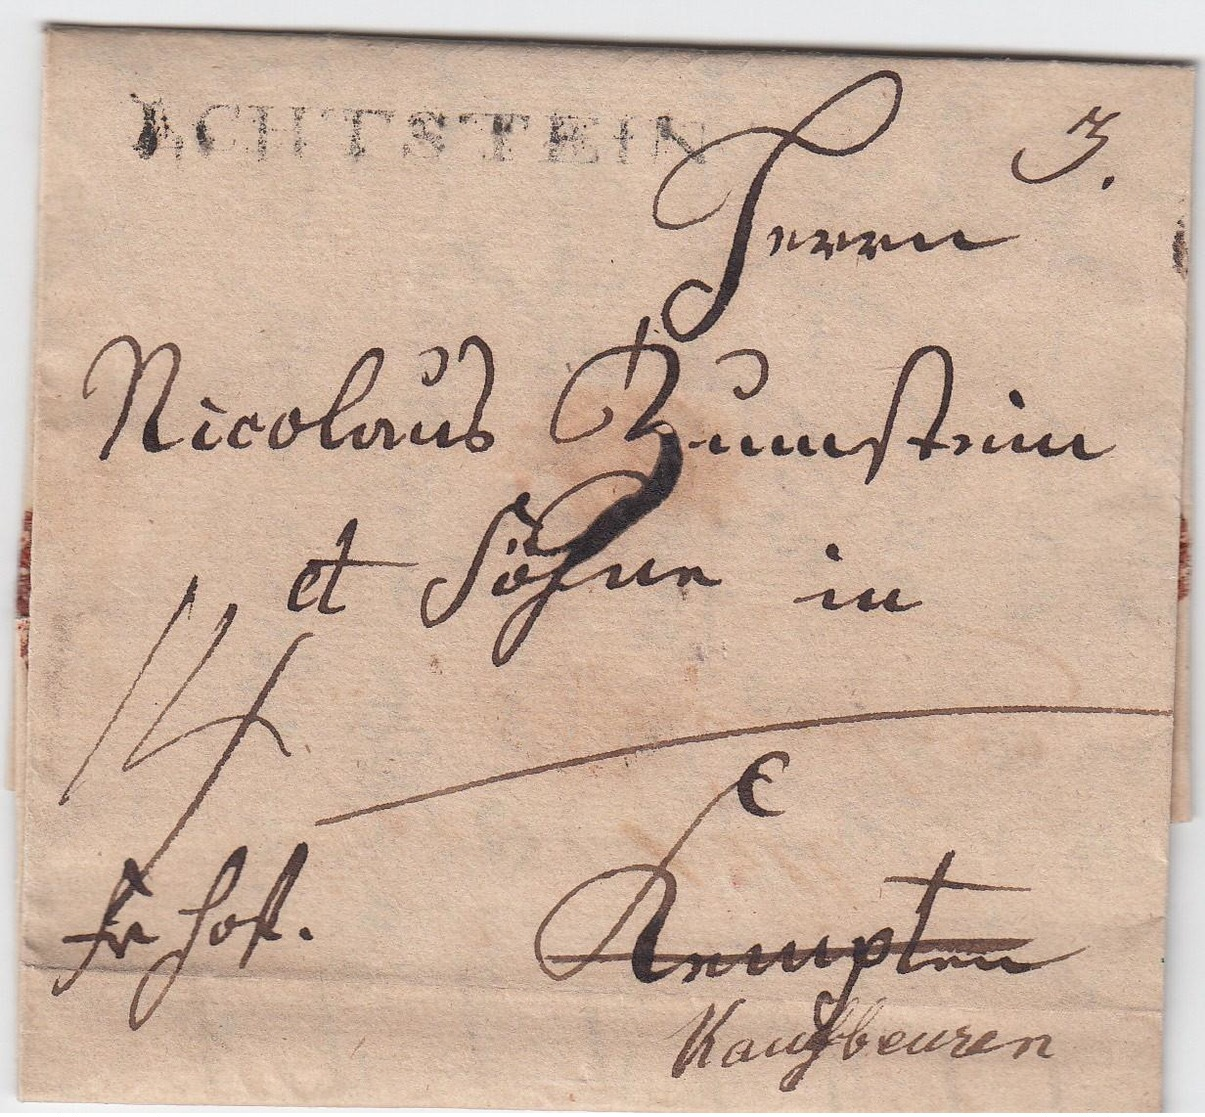 ACHTSTEIN
3.
Herrn
Nicolaus Zumstein
et Söhne in
14
fr hof.
Kempten
Kaufbeuren